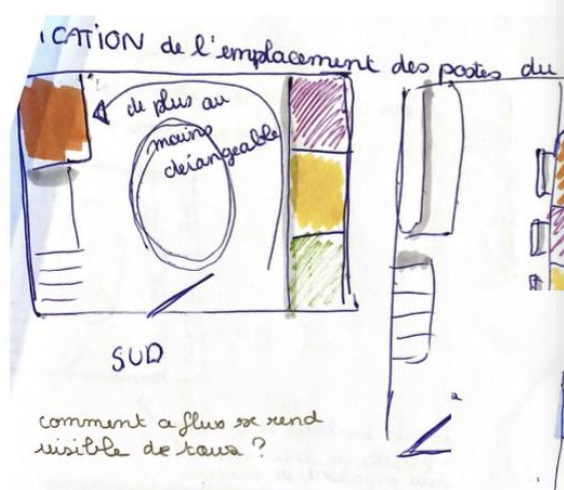 ICATION de l'emplacement des postes du
de plus au
moins
derangeable
SUD
comment a flux se rend
visible de tous ?